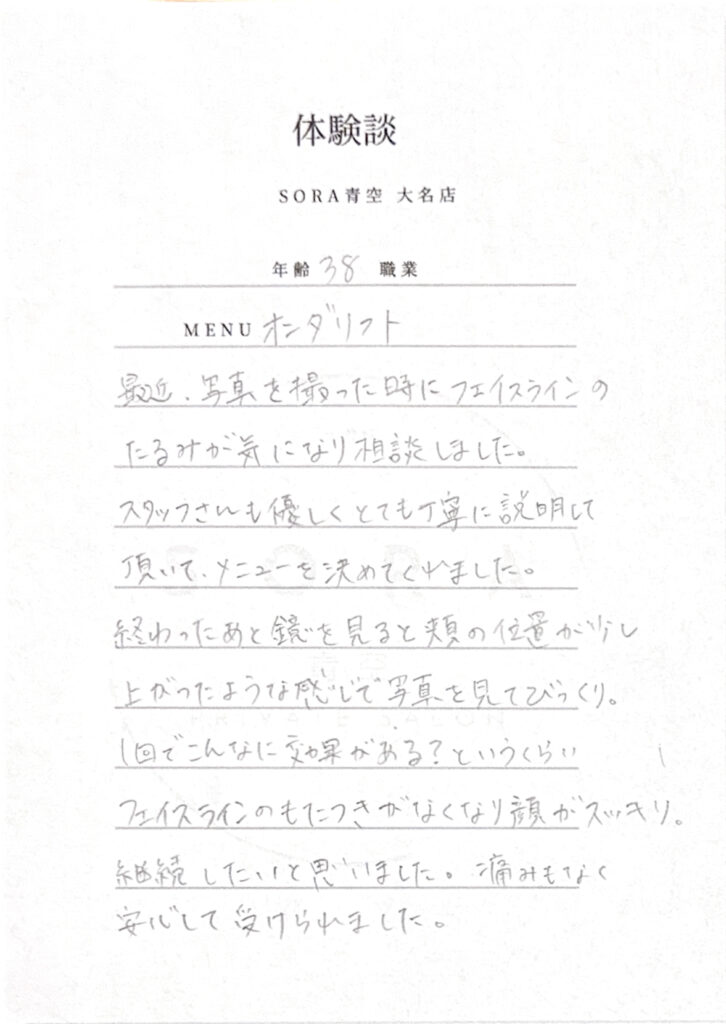 体験談
SORA青空 大名店
年齢 38 職業
MENU オンダリフト
最近、写真を撮った時にフェイスラインの
たるみが気になり相談しました。
スタッフさんも優しくとても丁寧に説明して
頂いて、メニューを決めてくれました。
終わったあと鏡を見ると頬の位置が少し
上がったような感じで写真を見てびっくり。
1回でこんなに効果がある?というくらい
フェイスラインのもたつきがなくなり顔がスッキリ。
継続したいと思いました。痛みもなく
安心して受けられました。